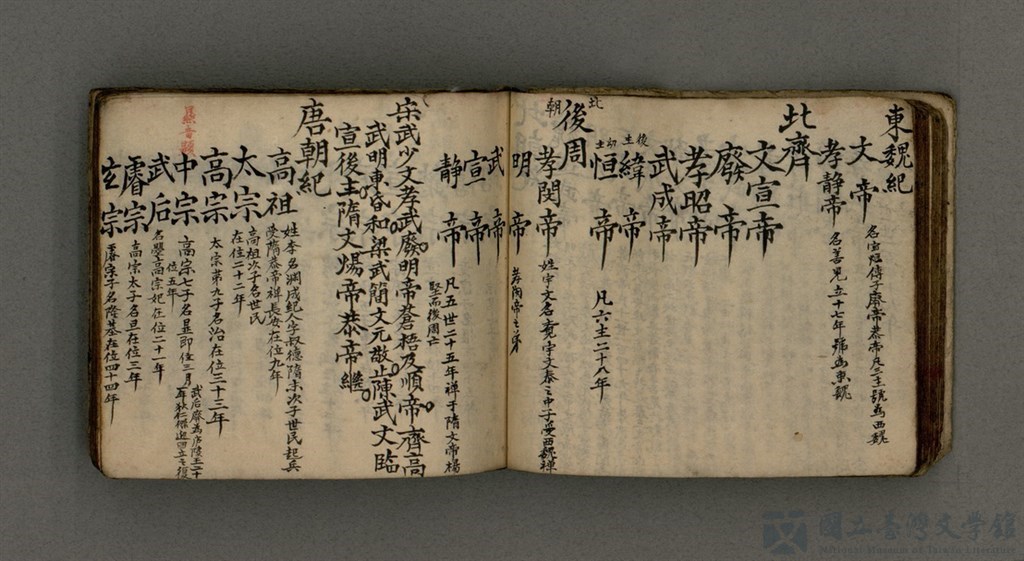 東魏紀
文帝 名宝炬傳子廢帝恭帝凡三主號爲西魏
孝静帝 名善見立十七年號爲東魏
北齊
文宣帝
廢帝
孝昭帝
武成帝
後主緯帝
幼主恒帝 凡六主二十八年
北朝後周
孝閔帝 姓宇文名覺宇文泰之中子受西魏禪
明帝 孝閔帝之弟
武帝
宣帝
静帝 凡五世二十五年禅于隋文帝楊堅而後周亡
宋武少文孝武廢明帝蒼梧及順帝齊高
武明東昏和梁武簡文元敬止陳武文臨
宣後主隋文煬帝恭帝継
唐朝紀
高祖 姓李名淵成紀人字叔德隋末次子世民起兵
受隋恭帝禅長安在位九年
太宗 高祖次子名世民
在位二十二年
高宗 太宗第九子名治在位三十三年
中宗 高宗七子名显即位三月武后廢爲庐陵王
位五年
武后 名曌高宗妃在位二十一年
睿宗 高宗太子名旦在位三年
玄宗 睿宗子名隆基在位四十四年
國立臺灣文學館
National Museum of Taiwan Literature